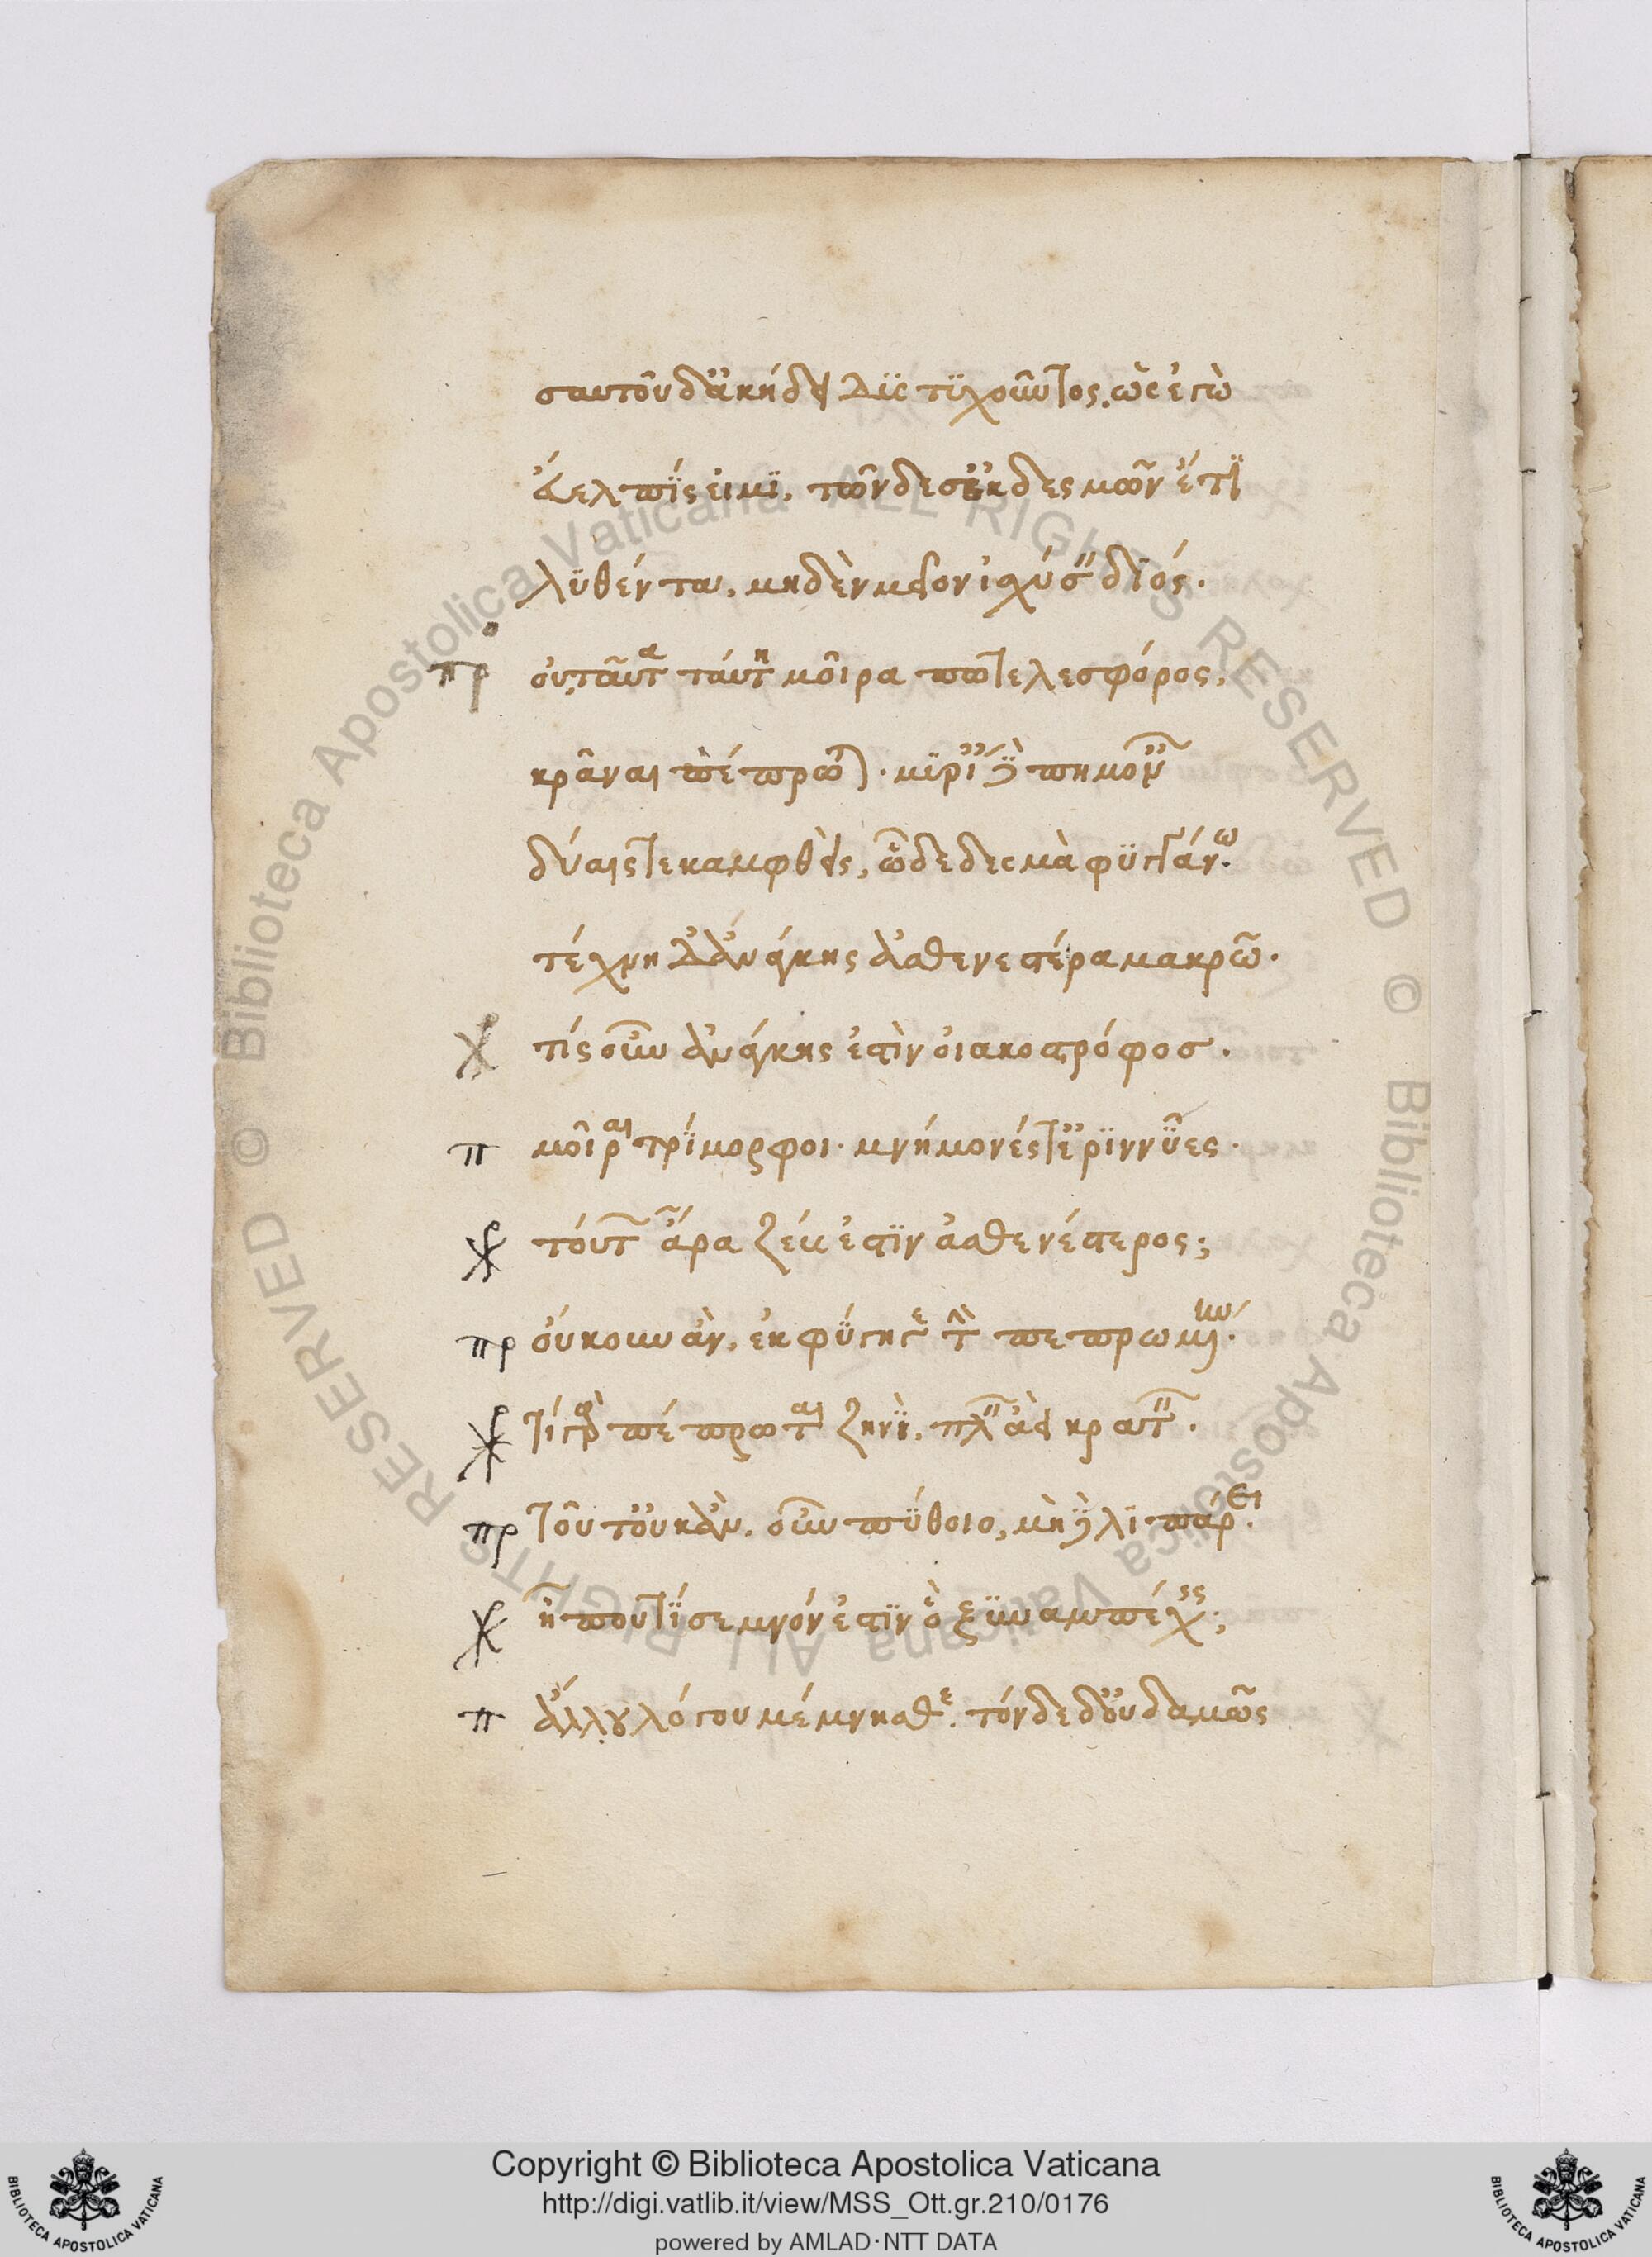 σαυτοῦ δ' ἀκήδει δυστυχοῦντος. ὡς ἐγὼ
εὔελπίς εἰμι, τῶνδέ σ' ἐκ δεσμῶν ἔτι
λυθέντα, μηδὲν μεῖον ἰσχύσειν διός.
προ οὐ ταῦτα ταύτη μοῖρα πω τελεσφόρος,
κρᾶναι πέπρωται. μυρίαις δὲ πημοναῖς
δύαις τε καμφθεὶς, ὧδε δεσμὰ φυγγάνω.
τέχνη δ' ἀνάγκης ἀσθενεστέρα μακρῶ.
χ τίς οὖν ἀνάγκης ἐστὶν οἰακοστρόφοσ.
π μοῖραι τρίμορφοι. μνήμονές τ' ἐρινννῦες.
χρ τούτων ἄρα ζεύς ἐστιν ἀσθενέστερος;
πρ οὔκουν ἂν. ἐκφύγη γε τὴν πεπρωμένην.
χρ τί γὰρ πέπρωται ζηνὶ, πλὴν ἀεὶ κρατεῖν.
πρ τοῦτ' οὐκ ἂν. οὖν πύθοιο, μὴ δὲ λιπάρει.
χρ ἦ πού τι σεμνόν ἐστιν ὃ ξυναμπέχεις;
π ἄλλου λόγου μέμνησθε. τόνδε δ' οὐδαμῶς
Copyright © Biblioteca Apostolica Vaticana
http://digi.vatlib.it/view/MSS_Ott.gr.210/0176
powered by AMLAD·NTT DATA
BIBLIOTECA APOSTOLICA VATICANA
BIBLIOTECA APOSTOLICA VATICANA
© Biblioteca Apostolica Vaticana ALL RIGHTS RESERVED
© Biblioteca Apostolica Vaticana ALL RIGHTS RESERVED